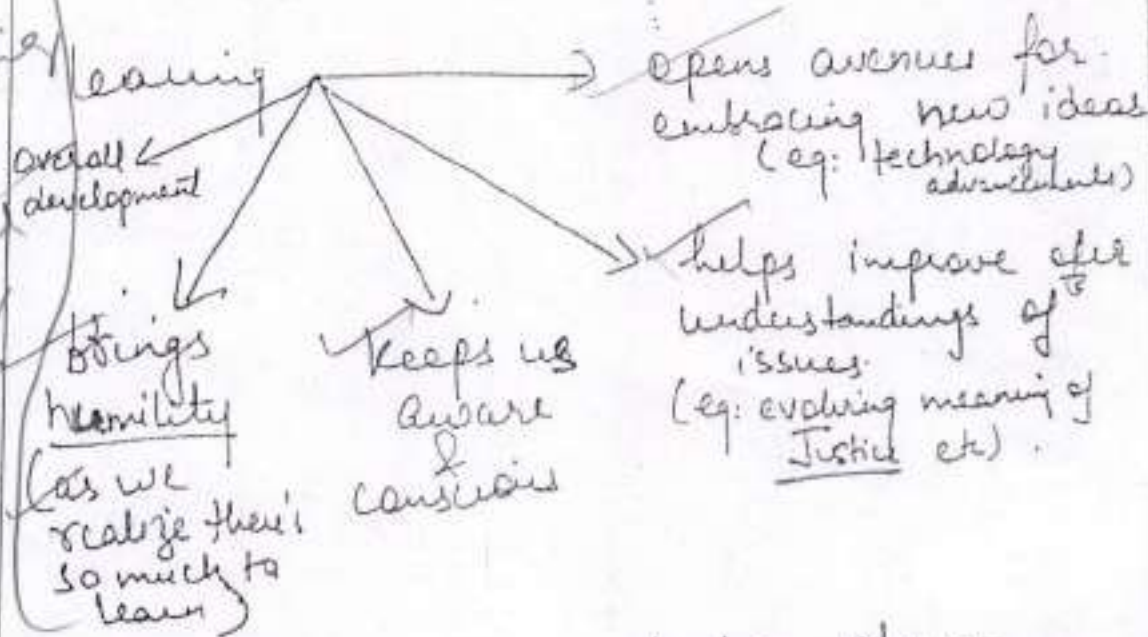 learning
opens avenues for
embracing new ideas
(eg: technology
advancements)
overall
development
helps improve
understandings of
issues.
(eg: evolving meaning of
Justice etc).
brings
humility
(as we
realize there's
so much to
learn)
keeps us
aware
&
conscious